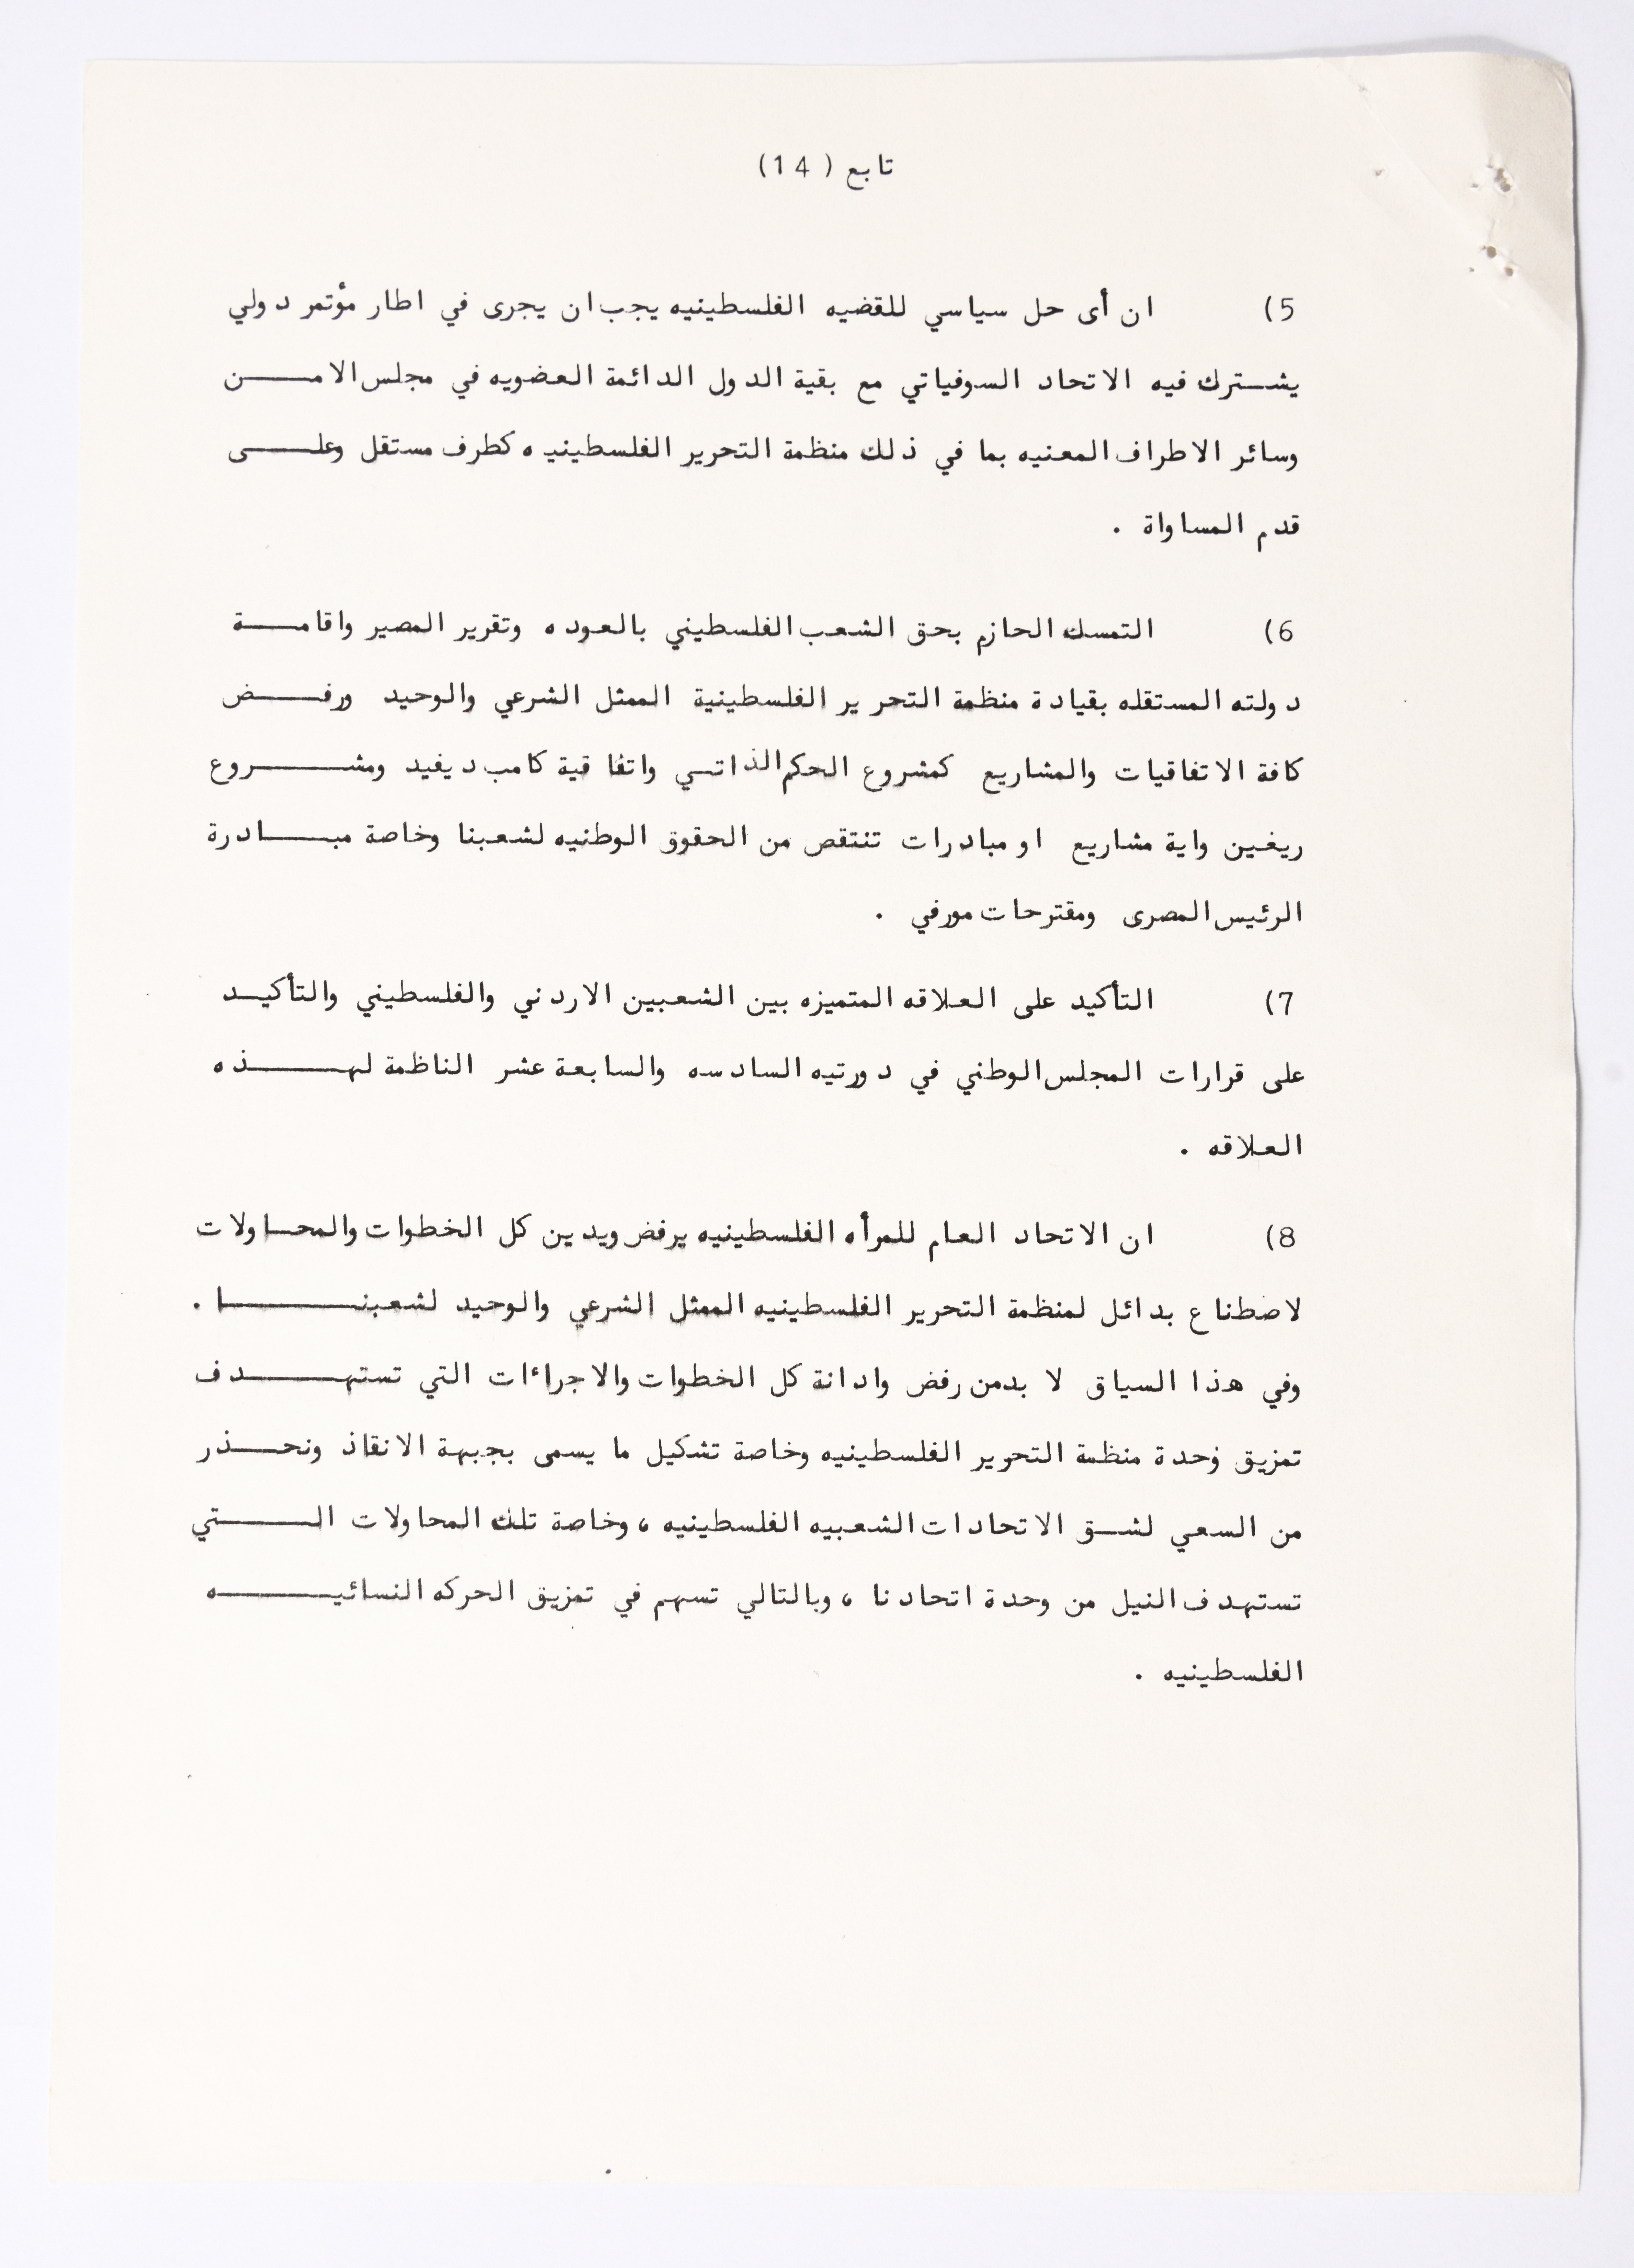 تابع (14)
5) ان أى حل سياسي للقضيه الفلسطينيه يجب ان يجرى في اطار مؤتمر دولي
يشـترك فيه الاتحاد السوفياتي مع بقية الدول الدائمة العضويه في مجلس الامـــن
وسائر الاطراف المعنيه بما في ذلك منظمة التحرير الفلسطينيه كطرف مستقل وعلـــى
قدم المساواة .
6) التمسك الحازم بحق الشعب الفلسطيني بالعوده وتقرير المصير واقامـــة
دولته المستقله بقيادة منظمة التحرير الفلسطينية الممثل الشرعي والوحيد ورفـــض
كافة الاتفاقيات والمشاريع كمشروع الحكم الذاتـي واتفاقية كامب ديفيد ومشـــروع
ريغـين واية مشاريع او مبادرات تنتقص من الحقوق الوطنيه لشعبنا وخاصة مبـــادرة
الرئيس المصرى ومقترحات مورفي .
7) التأكيد على العلاقه المتميزه بين الشعبين الاردني والفلسطيني والتأكيـد
على قرارات المجلس الوطني في دورتيه السادسه والسابعة عشر الناظمة لهـــذه
العلاقه .
8) ان الاتحاد العام للمرأه الفلسطينيه يرفض ويدين كل الخطوات والمحـاولات
لاصطناع بدائل لمنظمة التحرير الفلسطينيه الممثل الشرعي والوحيد لشعبنـــا .
وفي هذا السياق لا بدمن رفض وادانة كل الخطوات والاجراءات التي تستهـــدف
تمزيق وحدة منظمة التحرير الفلسطينيه وخاصة تشكيل ما يسمى بجبهة الانقاذ ونحـــذر
من السعي لشـق الاتحادات الشعبيه الفلسطينيه ، وخاصة تلك المحاولات الـــتي
تستهدف النيل من وحدة اتحادنا ، وبالتالي تسهم في تمزيق الحركه النسائيـــه
الفلسطينيه .